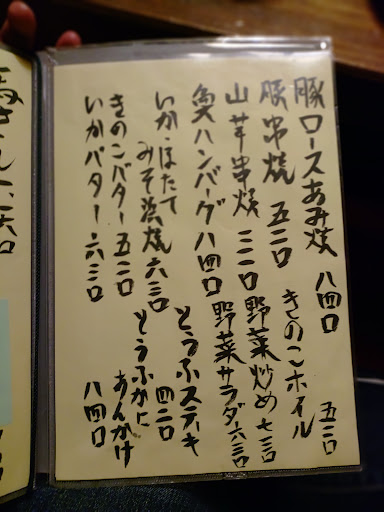 豚ロースあみ焼 八四〇
豚串焼 五二〇
きのこホイル 五二〇
山芋串焼 三二〇
野菜炒め 七三〇
魚ハンバーグ 八四〇
野菜サラダー 六三〇
いか・ほたて
みそ漬焼 六三〇
とうふステーキ 四二〇
きのこバター 五二〇
とうふかに
あんかけ 八四〇
いかバター 六三〇